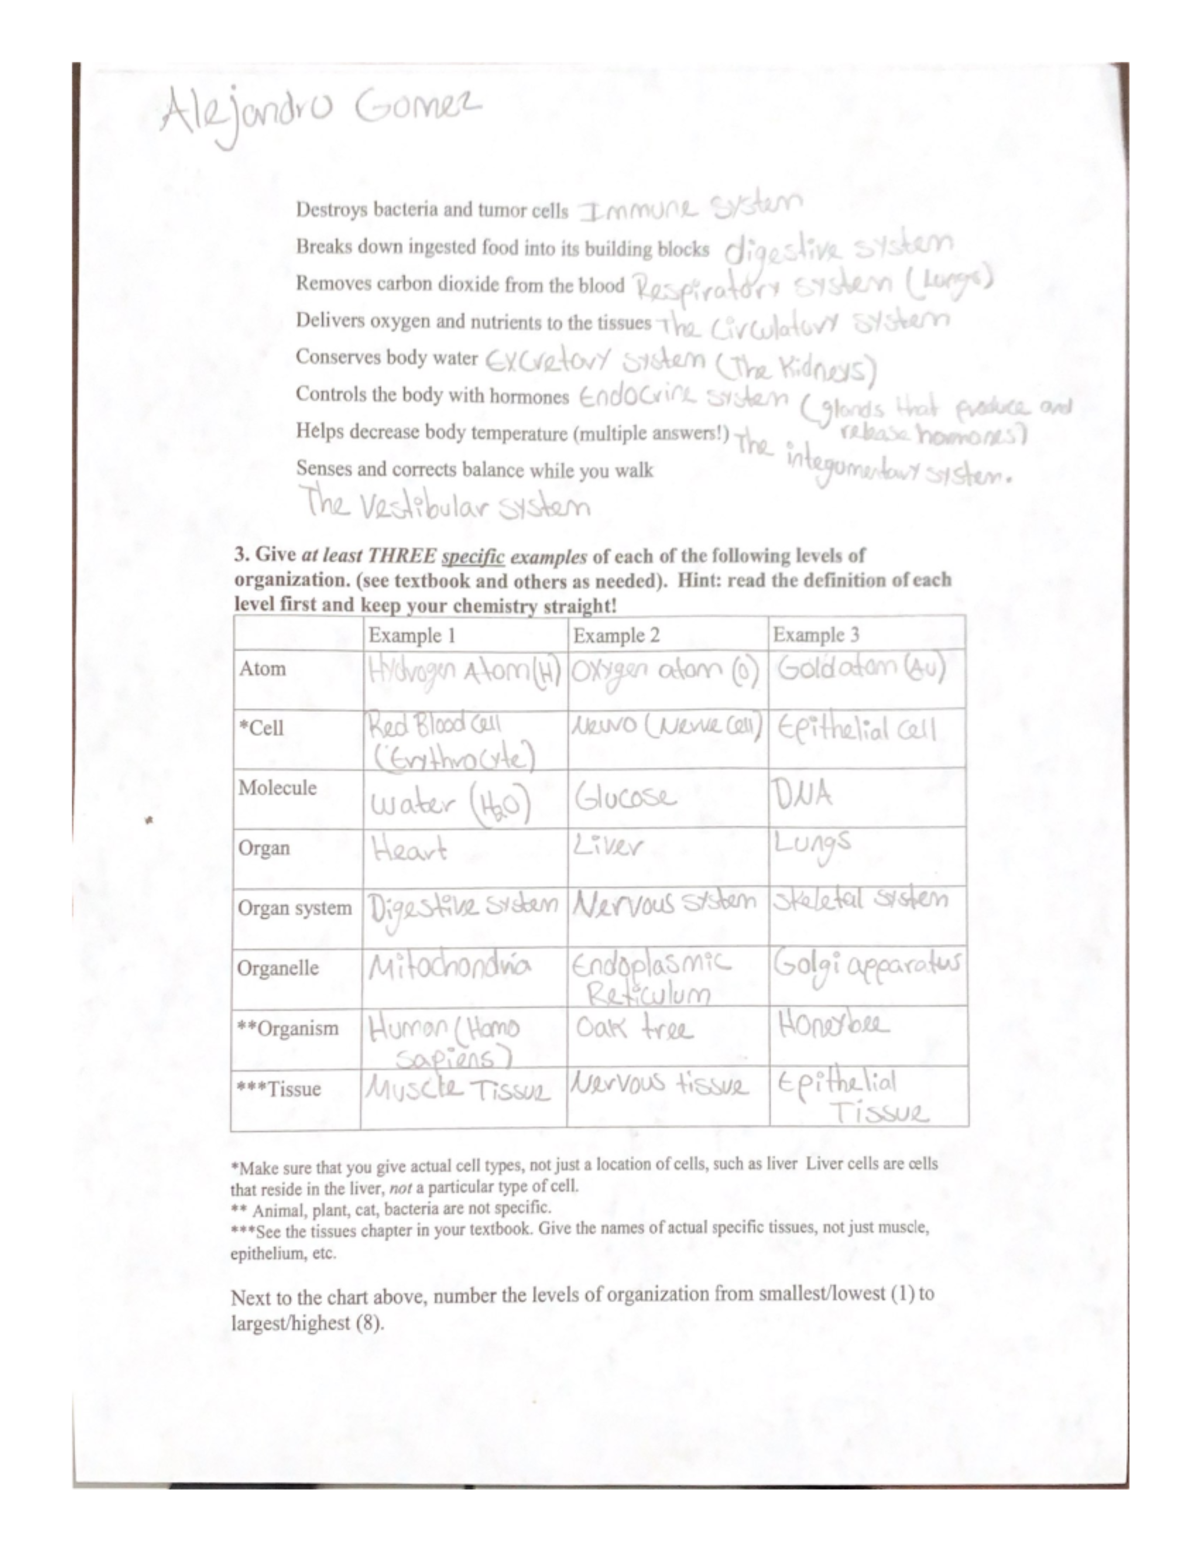 Alejandro Gomez
Destroys bacteria and tumor cells Immune system
Breaks down ingested food into its building blocks digestive system
Removes carbon dioxide from the blood Respiratory system (Lungs)
Delivers oxygen and nutrients to the tissues The Circulatory system
Conserves body water Excretory system (The Kidneys)
Controls the body with hormones Endocrine system (glands that produce and
release hormones)
Helps decrease body temperature (multiple answers!) The integumentary system.
Senses and corrects balance while you walk
The Vestibular system
3. Give at least THREE specific examples of each of the following levels of
organization. (see textbook and others as needed). Hint: read the definition of each
level first and keep your chemistry straight!
Example 1 Example 2 Example 3
Atom Hydrogen Atom (H) Oxygen atom (O) Gold atom (Au)
*Cell Red Blood Cell (Erythrocyte) (Nerve Cell) Epithelial cell
Molecule Water (H2O) Glucose DNA
Organ Heart Liver Lungs
Organ system Digestive system Nervous system Skeletal system
Organelle Mitochondria Endoplasmic Reticulum Golgi apparatus
**Organism Human (Homo sapiens) Oak tree Honeybee
***Tissue Muscle Tissue Nervous tissue Epithelial Tissue
*Make sure that you give actual cell types, not just a location of cells, such as liver Liver cells are cells
that reside in the liver, not a particular type of cell.
** Animal, plant, cat, bacteria are not specific.
***See the tissues chapter in your textbook. Give the names of actual specific tissues, not just muscle,
epithelium, etc.
Next to the chart above, number the levels of organization from smallest/lowest (1) to
largest/highest (8).